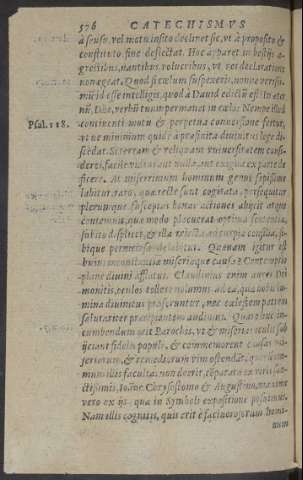 576 CATECHISMVS
à sensu, vel motu insito declinet sic, vt à proposito &
constituto fine deflectat. Hoc apparet in bestijs a-
gressilibus, nantibus, volucribus, vt res declaratione
non egeat. Quod si cœlum suspexeris, nonne verissi-
mū id esse intelligis, quod à Dauid edictū est: In æter-
nū, Dñe, verbū tuum permanet in cœlo: Nempe illud
Psal. 118. continenti motu & perpetua conuersione fertur,
vt ne minimum quidē à præfinita diuinitus lege di-
scedat. Si terram & reliquam vniuersitatem consi-
deres, facile videas aut nulla, aut exigua ex parte de-
ficere. At miserrimum hominum genus sæpissime
labitur: raro, quæ recte sunt cogitata, persequitur
plerumque susceptas bonas actiones abijcit atque
contemnit, quæ modo placuerat optima sententia,
subito displicet, & illa reiecta ad turpia consilia, si-
bique perniciosa delabitur. Quænam igitur est
huius inconstantiæ miseriæque causa? Contemptio
plane diuini afflatus. Claudimus enim aures Dei
monitis, oculos tollere nolumus ad ea, quæ nobis lu-
mina diuinitus præferuntur, nec cælestem patrem
salutariter præcipientem audimus. Quare hic in-
cumbendum erit Parochis, vt & miserias oculis sub-
ijciant fidelis populi, & commemorent causas mi-
seriarum, & remediorum vim ostendant, quorum om-
nium illis facultas non deerit, comparata ex viris san-
ctissimis, Ioanne Chrysostomo & Augustino, maxime
vero ex ijs, quæ in Symboli expositione posuimus.
Nam illis cognitis, quis erit è facinorosorum homi-
num